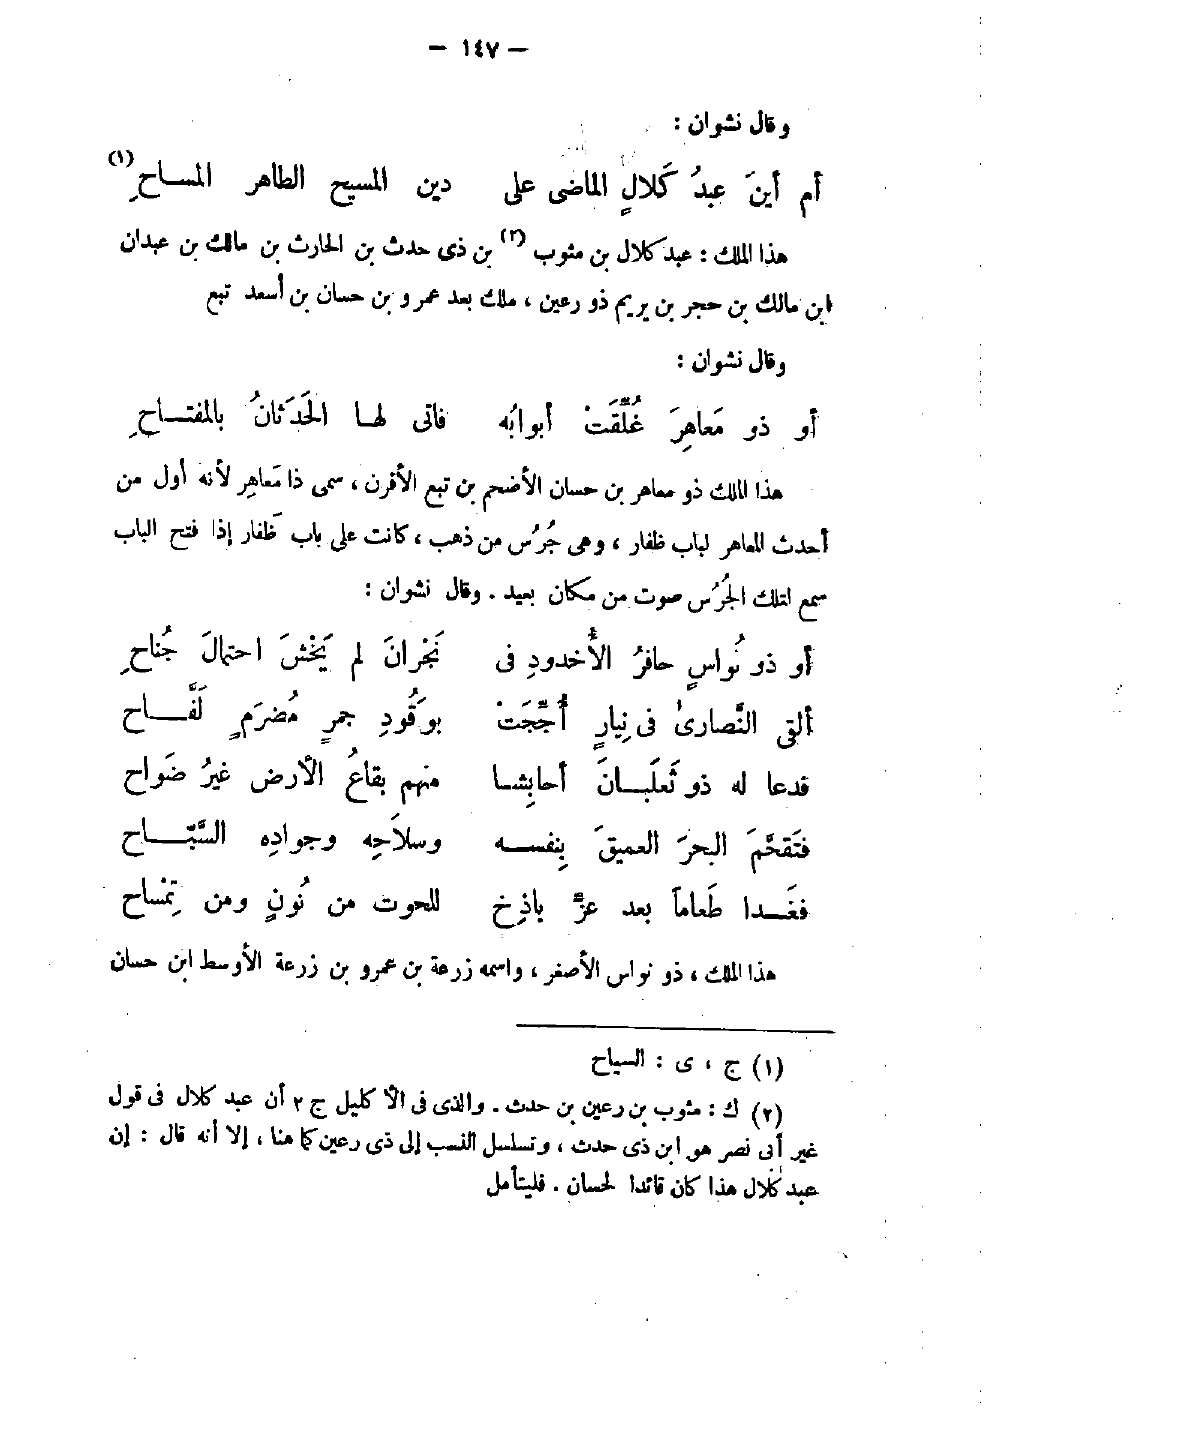 — ١٤٧ —
وقال نشوان :
أم أينَ عبدُ كَلالٍ الماضى على دين المسيح الطاهر المساحِ (١)
هذا الملك : عبد كلال بن مثوب (٢) بن ذى حدث بن الحارث بن مالك بن عبدان
ابن مالك بن حجر بن يريم ذو رعين ، ملك بعد عمرو بن حسان بن أسعد تبع
وقال نشوان :
أو ذو مَعاهِرَ غُلِّقَتْ أبوابُه فاتى لها الحَدَثانُ بالمفتاحِ
هذا المالك ذو معاهر بن حسان الأضخم بن تبع الأقرن ، سمى ذا مَعاهِر لأنه أول من
أحدث المعاهر لباب ظفار ، وهى جُرُس من ذهب ، كانت على باب ظَفار إذا فتح الباب
سمع لتلك الجُرُس صوت من مكان بعيد . وقال نشوان :
أو ذو نُواسٍ حافرُ الأُخدودِ فى نَجْرانَ لم يَخْشَ احتمالَ جُناحِ
ألقى النَّصارىٰ فى نِيارٍ أُجِّجَتْ بوَقُودِ جمرٍ مُضرَمٍ لَفَّاح
قدعا له ذو ثَعلَبانَ أحابِشا منهم بقاعُ الأرض غيرُ ضَواح
فتَقحَّمَ البحرَ العميقَ بِنفسه وسلاَحِه وجوادِه السَّبّاح
فغَدا طَعاماً بعد عزٍّ باذِخ للحوت من نُونٍ ومن تِمْساح
هذا الملك ، ذو نواس الأصغر ، واسمه زرعة بن عمرو بن زرعة الأوسط ابن حسان
(١) ج ، ى : السياح
(٢) ك : مثوب بن رعين بن حدث . والذى فى الأكليل ج ٢ أن عبد كلال فى قول
غير أبى نصر هو ابن ذى حدث ، وتسلسل النسب إلى ذى رعين كما هنا ، إلا أنه قال : إن
عبد كلال هذا كان قائدا لحسان . فليتأمل